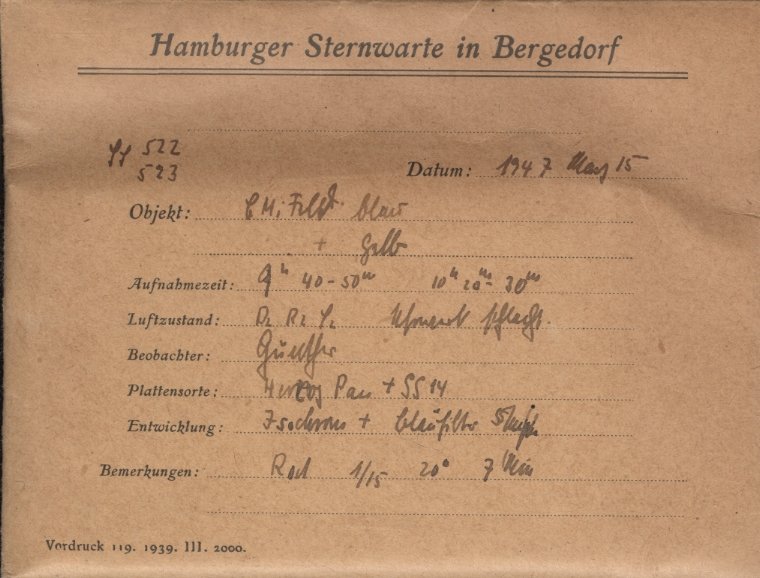 Hamburger Sternwarte in Bergedorf
522
523
Datum: 1947 May 15
Objekt: blau
+ Gelb
Aufnahmezeit: 9h 40-50m 10h 20m-30m
Luftzustand: D2 R2 S2 schlecht
Beobachter: Günther
Plattensorte: Herzog Pan + SS 14
Entwicklung: Isochrom + blaufilter
Bemerkungen: Rod 1/15 20° 7 Min
Vordruck 119. 1939. III. 2000.